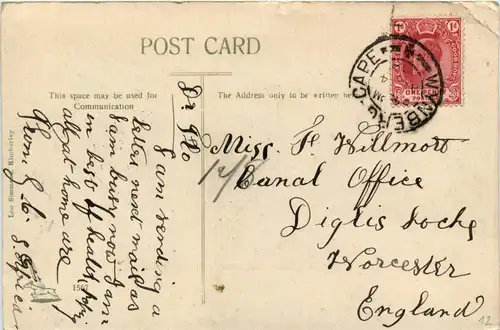 POST CARD
This space may be used for
Communication
The Address only to be written here
WYNBERG·CAPE
ONE PENNY
Dr Flo
I am sending a
letter next mail as
I am busy now I am
in best of health hope
all at home are
from
S. Africa
Miss. F Willmott
Canal Office
Diglis Locks
Worcester
England
Leo Kimberley
12